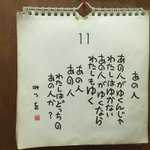 11
あの人
あの人がゆくんじゃ
わたしはゆかない
あの人がゆくなら
わたしもゆく
あの人
あの人
わたしはどっちの
あの人か？
みつを